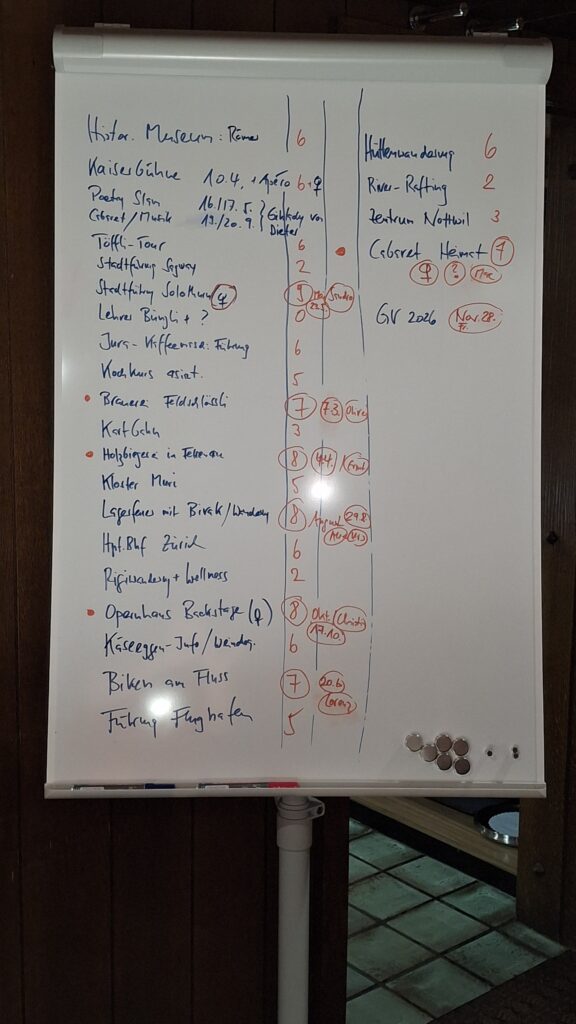 Histor. Museum: Römer 6
Kaiserbühne 10.4. + Apéro 6+♀
Poetry Slam 16./17. 5. } Einladg von
Cabaret/Musik 19./20. 9. } Dieter
Töffli-Tour 6
Stadtführung Segway 2
Stadtführg Solothurn ♀ 9 Sandro
Lehrer Bürgli + ? 0
Jura-Kaffeemasch. Führung 6
Kochkurs asiat. 5
• Brauerei Feldschlössli 7 7.3.
Kart Bahn 3
• Holzbiegerei in 8 4.4.
Kloster Muri 5
Lagerfeuer mit Biwak/Wanderg 8 August 29.8
Hpt.Bhf Zürich 6
Rigiwanderung + Wellness 2
• Opernhaus Backstage (♀) 8 Okt. Christian
17.10.
Käseeggen-Info/Wanderg. 6
Biken am Fluss 7 20.6.
Lorenz
Führung Flughafen 5
Hüttenwanderung 6
River-Rafting 2
Zentrum Nottwil 3
• Cabaret Heimat 7
♀ ?
GV 2026 Nov. 28.
Fr.